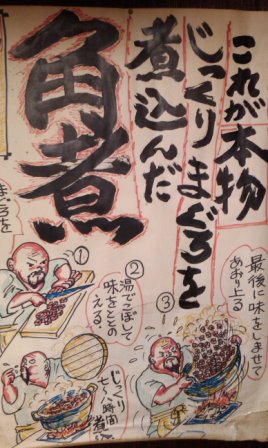 これが本物
じっくりまぐろを
煮込んだ
角煮
まぐろを
①
②
湯でこぼして
味をととの
える。
じっくり
七～八時間
煮込
③
最後に味をしませて
あおり上る